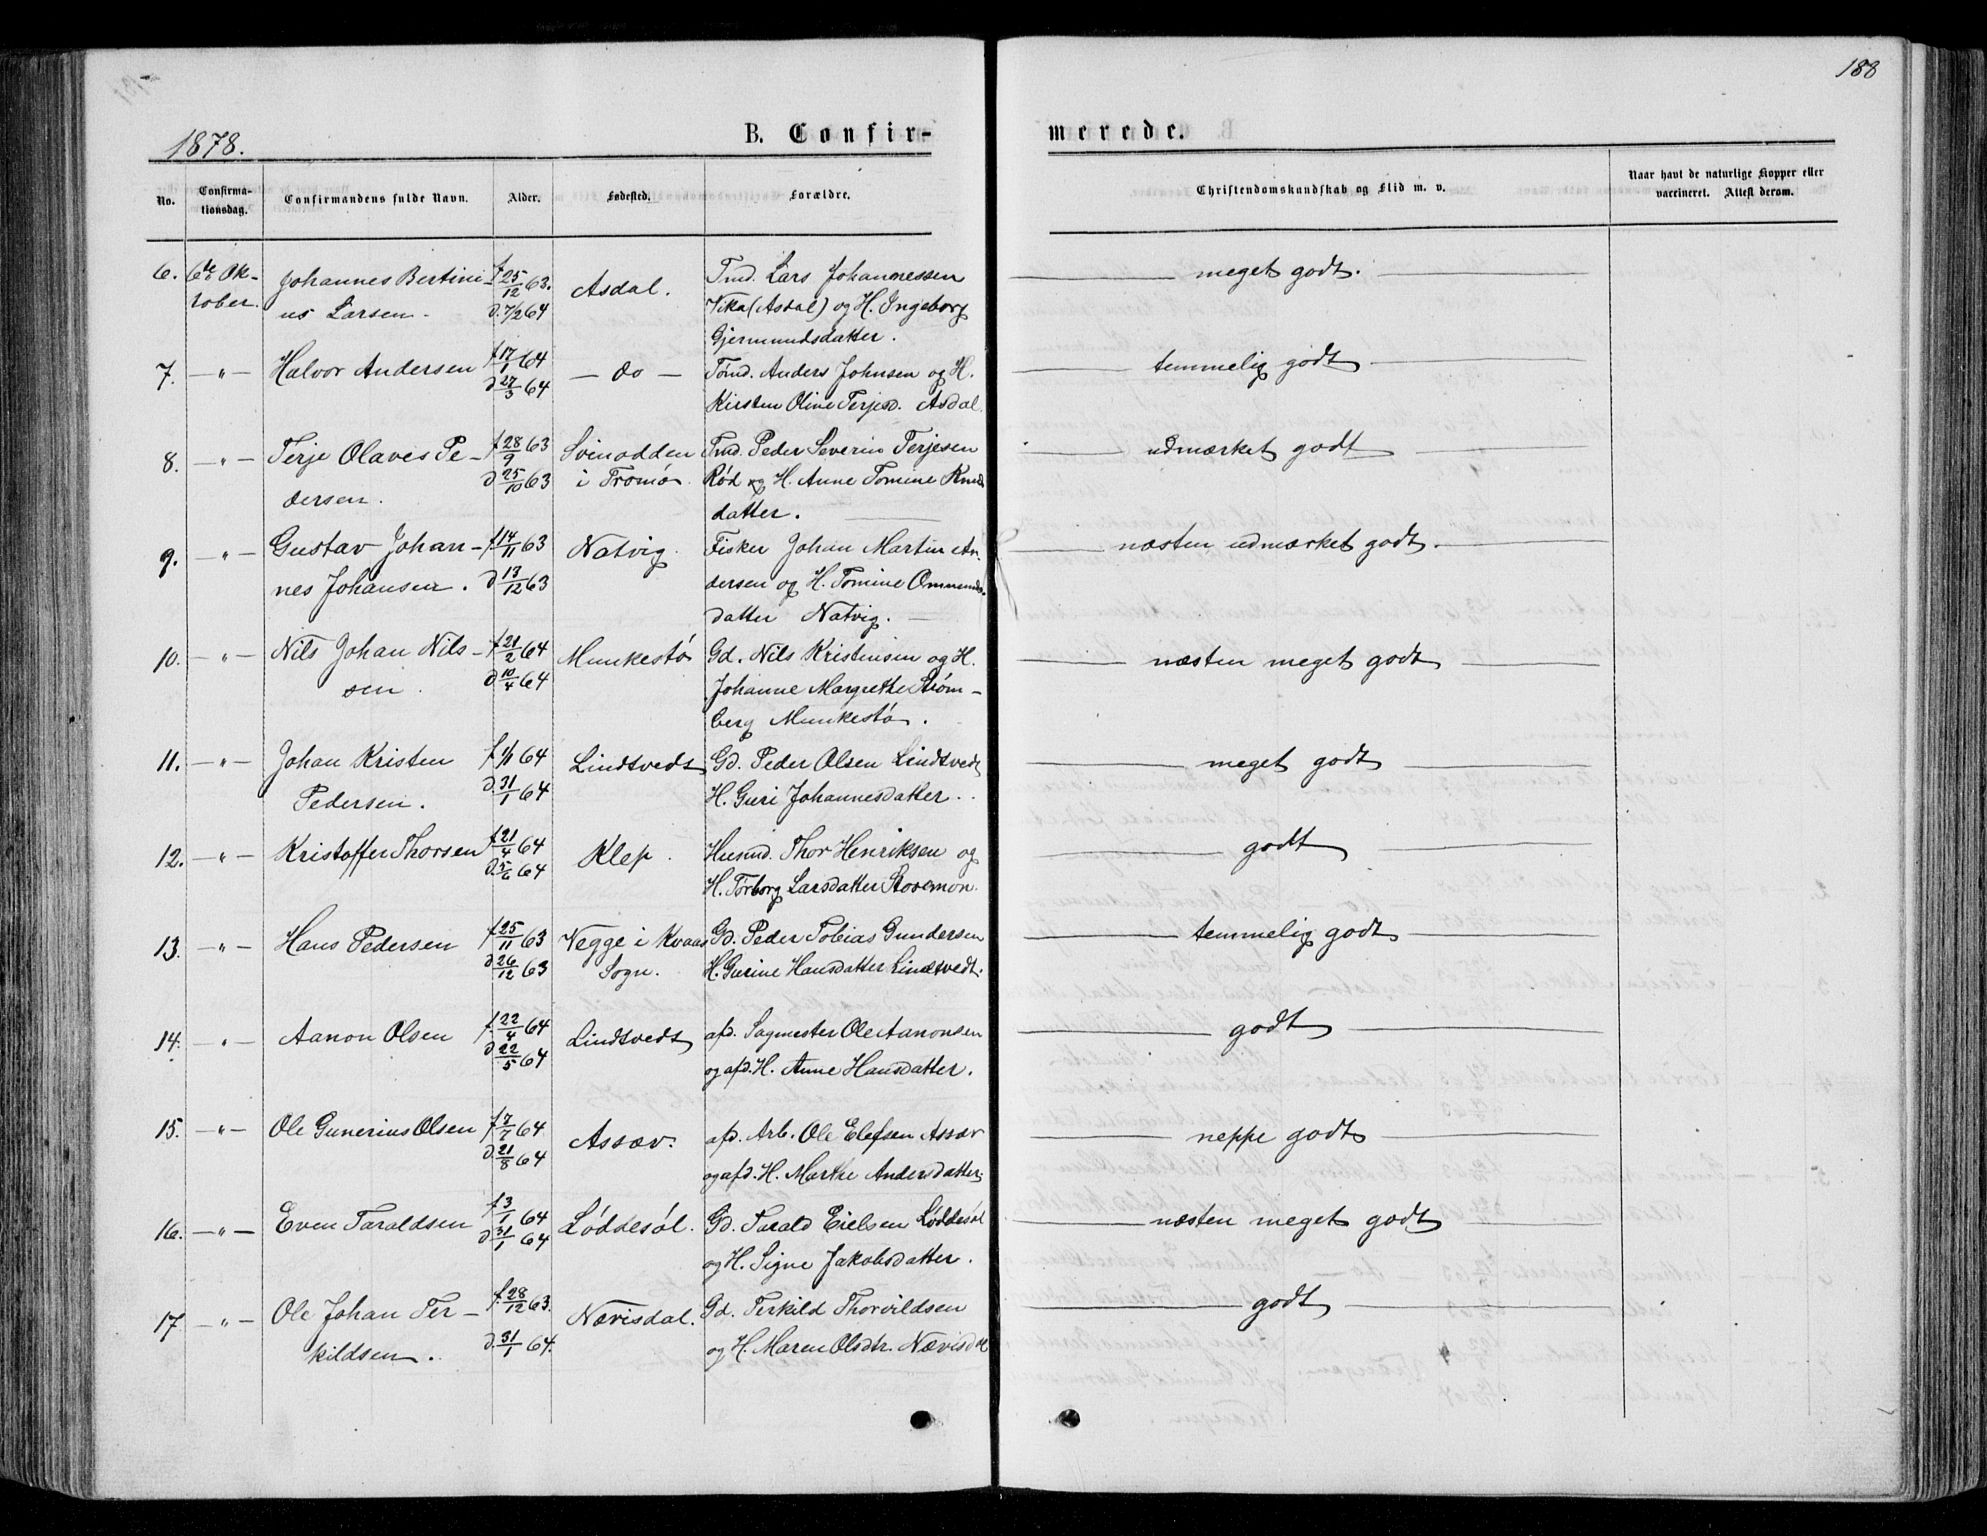 188
1878.
B. Confir-
merede.
No.
Confirma-
tionsdag.
Confirmandens fulde Navn.
Alder.
Fødested.
Forældre.
Christendomskundskab og Flid m. v.
Naar havt de naturlige Kopper eller
vaccineret. Attest derom.
6. 6te Ok- Johannes Bertini- f. 25/12 63. Asdal. Tmd. Lars Johannessen — meget godt. —
tober. us Larsen. d. 7/2 64 Vika (Asdal) og H. Ingeborg
Gjermundsdatter.
7. — " — Halvor Andersen f. 17/1 64 — do — Tømd. Anders Johnsen og H. — temmelig godt —
d. 27/3 64 Kirsten Oline Terjesd. Asdal.
8. — " — Terje Olaves Pe- f. 28/9 63 Svinodden Tmd. Peder Severin Terjesen — udmærket godt —
dersen. d. 25/10 63 i Tromø. Rød og H. Anne Tomine Knuds
datter.
9. — " — Gustav Johan- f. 14/11 63 Natvig. Fisker Johan Martin An- — næsten udmærket godt. —
nes Johansen. d. 13/12 63 dersen og H. Tomine Ommunds-
datter Natvig. —
10. — " — Nils Johan Nils- f. 21/2 64 Munkestø Gd. Nils Kristensen og H. — næsten meget godt —
sen. d. 10/4 64 Johanne Margrethe Strøm-
berg Munkestø.
11. — " — Johan Kristen f. 1/1 64 Lindtvedt Gd. Peder Olsen Lindtvedt — meget godt —
Pedersen. d. 31/1 64 H. Guri Johannesdatter.
12. — " — Kristoffer Thorsen f. 21/4 64 Klep. Husmd. Thor Henriksen og — godt —
d. 5/6 64 H. Tørborg Larsdatter
13. — " — Hans Pedersen f. 25/11 63 Vegge i Kvaas Gd. Peder Tobias Gundersen — temmelig godt —
d. 26/12 63 Sogn. H. Gurine Hansdatter Lindtvedt.
14. " Aanon Olsen f. 22/4 64 Lindtvedt afd. Sagmester Ole Aanonsen — godt —
d. 22/5 64 og afd. H. Anne Hansdatter.
15. — " — Ole Gunerius Olsen f. 7/7 64 Assæv. afd. Arb. Ole Elefsen Assæv — neppe godt —
d. 21/8 64 og afd. H. Marthe Andersdatter.
16. — " — Even Taraldsen f. 3/1 64 Løddesøl. Gd. Tarald Eielsen Løddesøl — næsten meget godt —
d. 31/1 64 og H. Signe Jakobsdatter.
17 — " — Ole Johan Ter- f. 28/12 63. Nævisdal. Gd. Terkild Thorvildsen — godt —
kildsen. d. 31/1 64. og H. Maren Olsdtr. Nævisdal